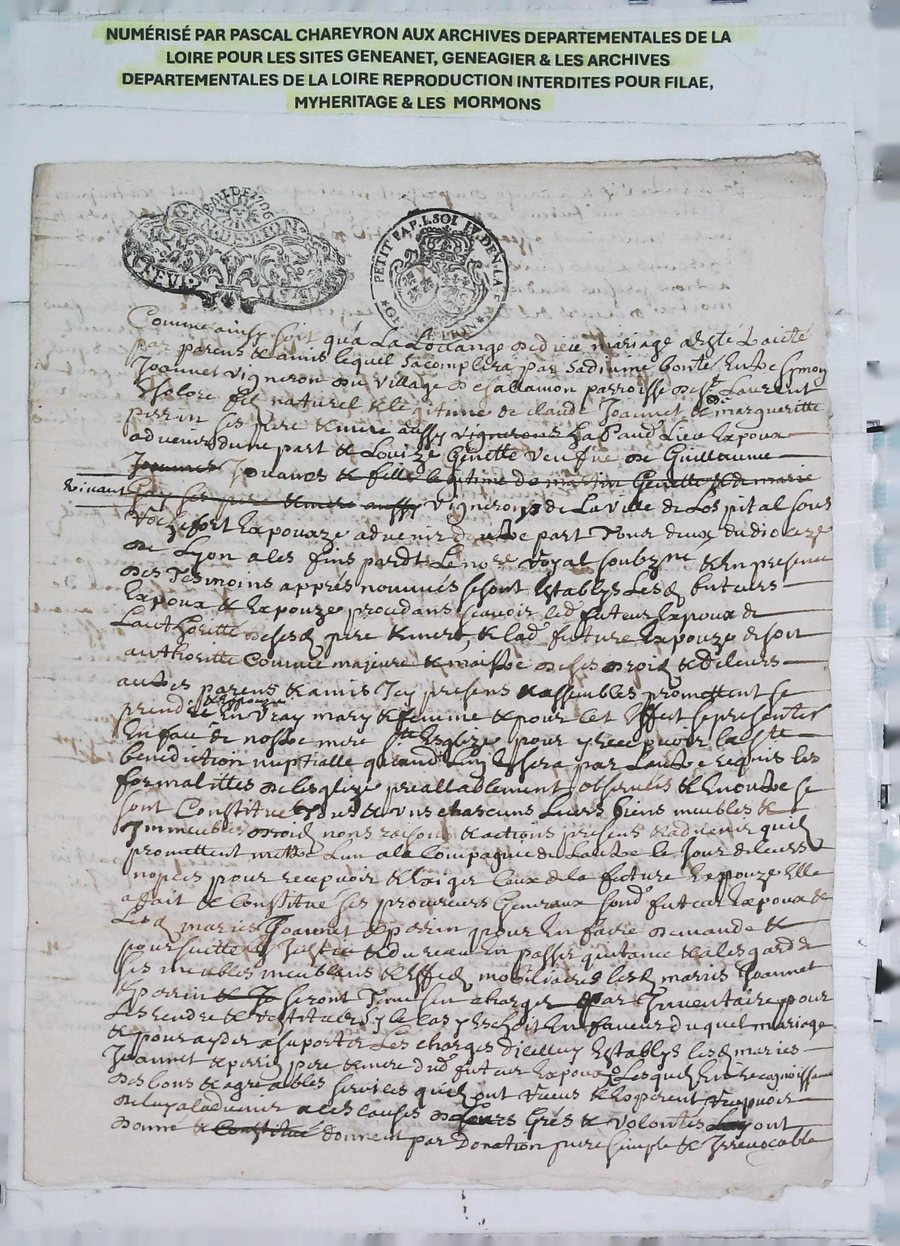 NUMÉRISÉ PAR PASCAL CHAREYRON AUX ARCHIVES DEPARTEMENTALES DE LA
LOIRE POUR LES SITES GENEANET, GENEAGIER & LES ARCHIVES
DEPARTEMENTALES DE LA LOIRE REPRODUCTION INTERDITES POUR FILAE,
MYHERITAGE & LES MORMONS
PETIT PAP. I. SOL
Comme ainsy soit qua La Louange de dieu mariage
par parens & amis lequel sacomplira par sa divine bonté Entre Simon
Joannet vigneron du village de parroisse de st Laurent
fils naturel & legitime de claude Joannet & de margueritte
perrin ses pere & mere aussy vignerons
advenir dune part & Louize Genette veufve de Guillaume
& fille legitime de martin Genette & de marie
vivant
ses pere & mere aussy vigneron de La ville de Lospital sous
Rochefort Expouze advenir dautre part Tous deux du dioceze
de Lyon a les fins pardt Le nore Royal soubzne & En presence
des Tesmoins appres nommés se sont Establys Lesd futeurs
Expoux & Expouze procedans scavoir led futeur Expoux de
Lauthoritté de sesd pere & mere, & lad future Expouze de son
authoritté comme majeure & maitresse de ses droits & de leurs
autres parens & amis Icy presens & assemblés promettent se
prendre En vray mary & femme & pour cet Effect se presenter
En face de nostre mere ste Esglize pour y recepvoir la ste
benediction nuptialle quand Lun Lessera par Lautre requis les
formalittes de lesglize preallablement observées & En outre se
sont Constitué Tous & uns chascuns Leurs biens meubles &
Immeubles droits noms raisons & actions presens & advenir quils
promettent mettre Lun a la Compagnie de Lautre le Jour de leurs
nopces pour recepvoir & Exiger Ceux de la future Expouze Elle
a fait & Constitué ses procureurs Generaux sond futeur Expoux &
Lesd maries Joannet & perrin pour En faire demande &
poursuitte En passer quitance & a les gard de
ses meubles meublans & Effects mobiliaires lesd maries Joannet
& perrin seront Tenus sen charger par Inventaire pour
Les rendre & restituer sy le cas y Eschoit En faveur duquel mariage
& pour ayder a suporter Les charges dicelluy Establys lesd maries
Joannet & perrin pere & mere dud futeur Expoux Lesquels En recognoissance
des bons & agreables services quils ont receus & Esperent recepvoir
de luy a ladvenir a les causes de Leurs Grés & volontés ont
donné & Constitué donnent par Donation pure simple & Irrevocable